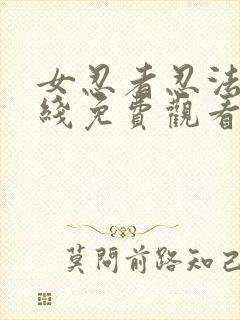 女忍者忍法
綫免費觀看
莫問前路知己